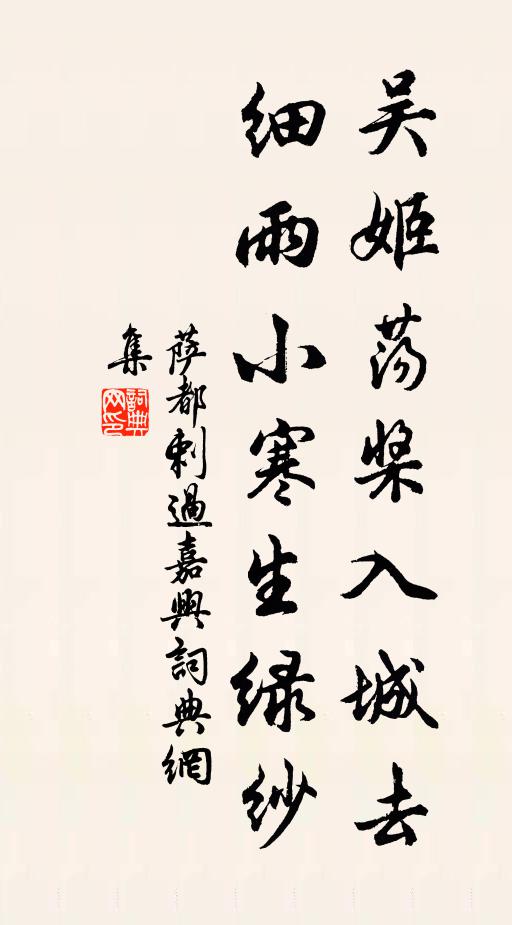 吴姬荡桨入城去
细雨小寒生绿纱
萨都剌過嘉興詞典網
集
詞典网印